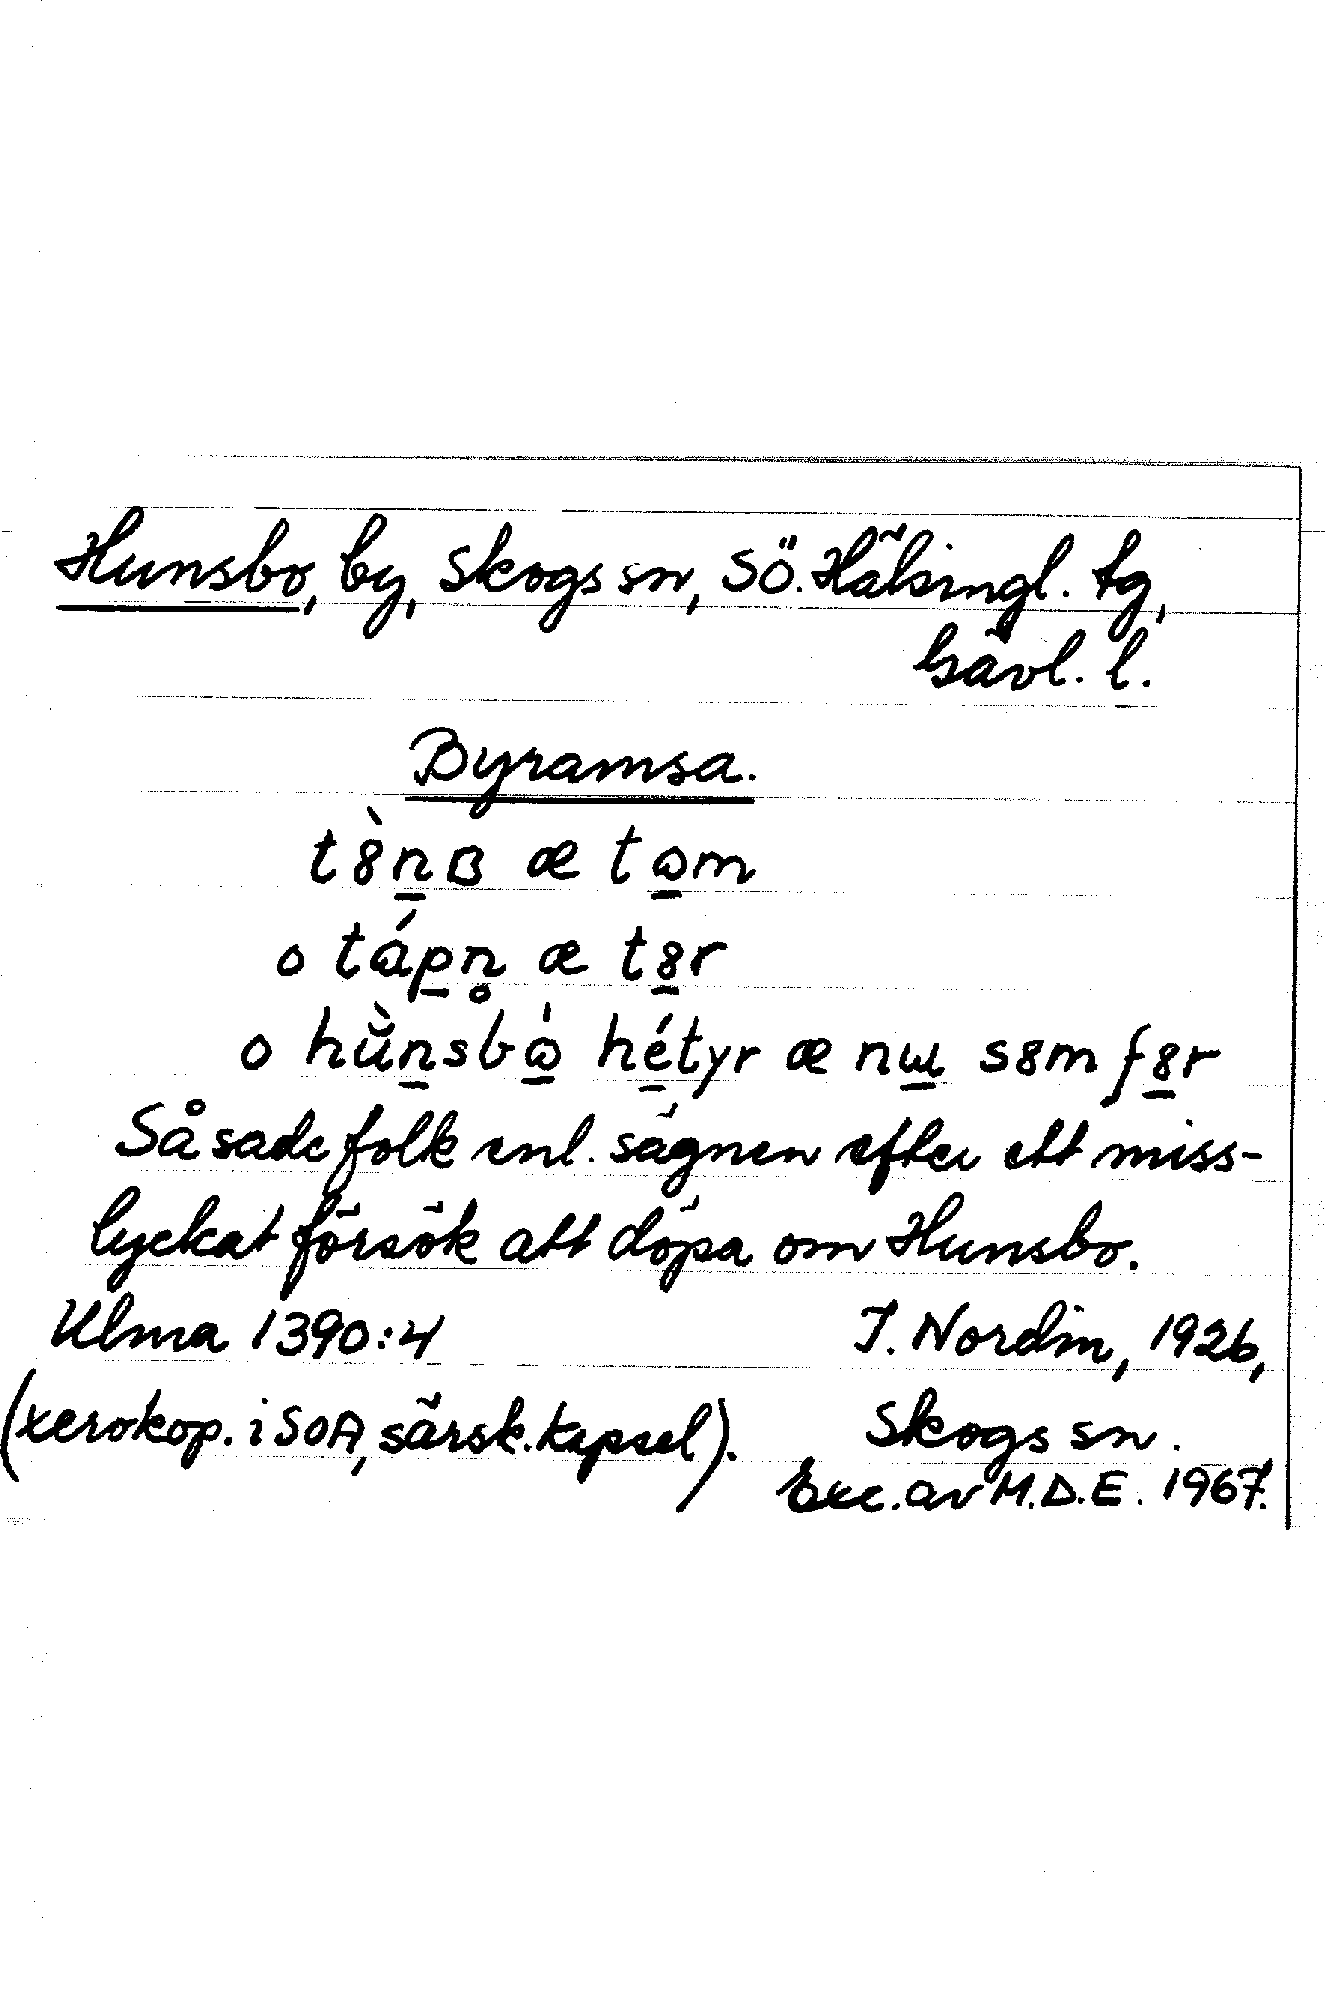 Hunsbo, by, Skogs sn, SÖ. Hälsingl. tg,
Gävl. l.
Byramsa.
t8̀n̲ʙ æ tɷ̲m
o táp̲n̥ æ t8̲r
o hǜn̲sbɷ̲̍ hé̲tyr æ nɯ̲ s8m f8̲r
Så sade folk enl. sägnen efter ett miss-
lyckat försök att döpa om Hunsbo.
Ulma 1390:4 J. Nordin, 1926,
(xerokop. i SOA, särsk. kapsel). Skogs sn.
Exc. av M.D.E. 1967.